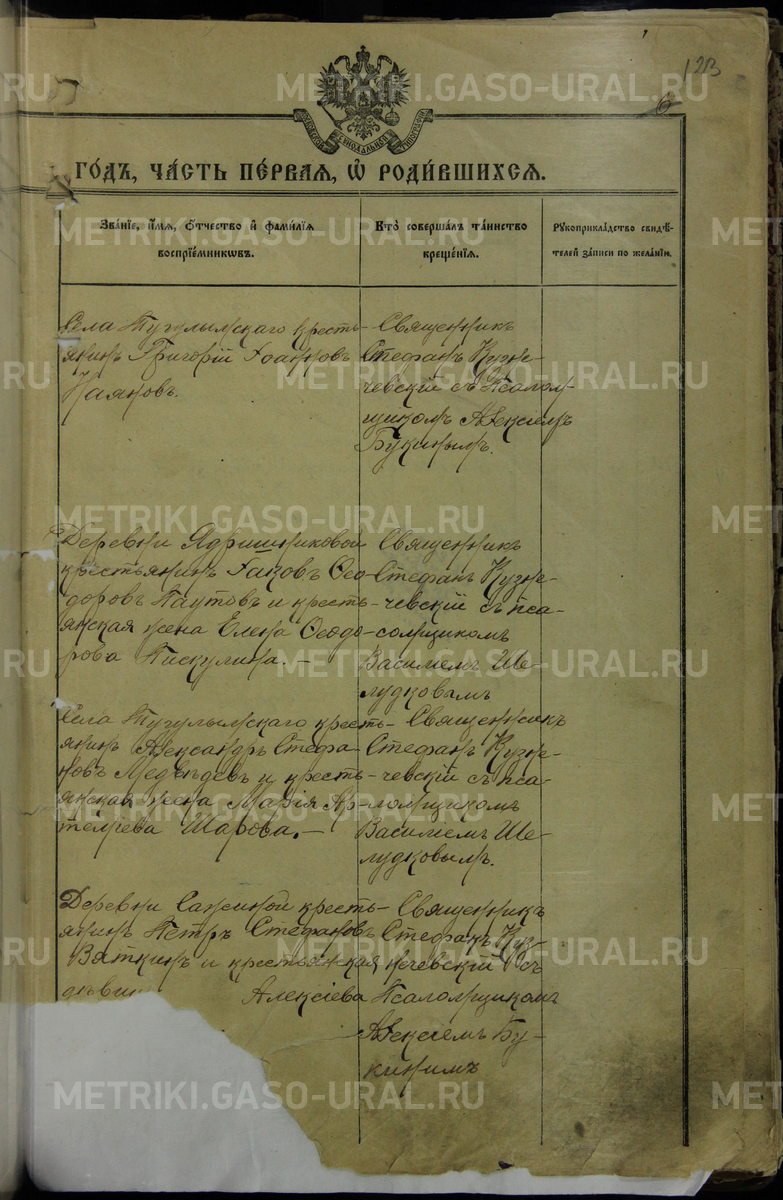 213
6
СИНОДАЛЬНОЙ
ГО́ДЪ, ЧА́СТЬ ПЕ́РВАѦ, Ѿ РОДИ́ВШИХСѦ.
Зва́нїе, и́мѧ, ѻ́тчество и҆ фами́лїѧ
воспрїе́мникѡвъ.
Кто̀ соверша́лъ та́инство
креще́нїѧ.
Рꙋкоприкла́дство свидѣ́-
телей за́писи по жела́нїю.
Села Тугулымскаго кресть-
янинъ Григорій Іоанновъ
Каяновъ.
Священникъ
Стефанъ Кузне-
чевскій съ Псалом-
щикомъ Алексіемъ
Букинымъ.
Деревни Ядрышниковой
крестьянинъ Іаковъ Ѳео-
доровъ Паутовъ и кресть-
янская жена Елена Ѳеодо-
рова Пискулина.-
Священникъ
Стефанъ Кузне-
чевскій съ пса-
сомщикомъ
Василіемъ Ше-
лудковымъ
Села Тугулымскаго кресть-
янинъ Александръ Стефа-
новъ Медвѣдевъ и кресть-
янская жена Марія Ар-
темѣева Шарова.-
Священникъ
Стефанъ Кузне-
чевскій съ пса-
ломщикомъ
Василіемъ Ше-
лудковымъ.
Деревни Сажиной кресть-
янинъ Петръ Стефановъ
Вяткинъ и крестьянская
дѣвиц Алексіева
Священникъ
Стефанъ Куз-
нечевскій съ
Псаломщикомъ
Алексіемъ Бу-
кинимъ
METRIKI.GASO-URAL.RU